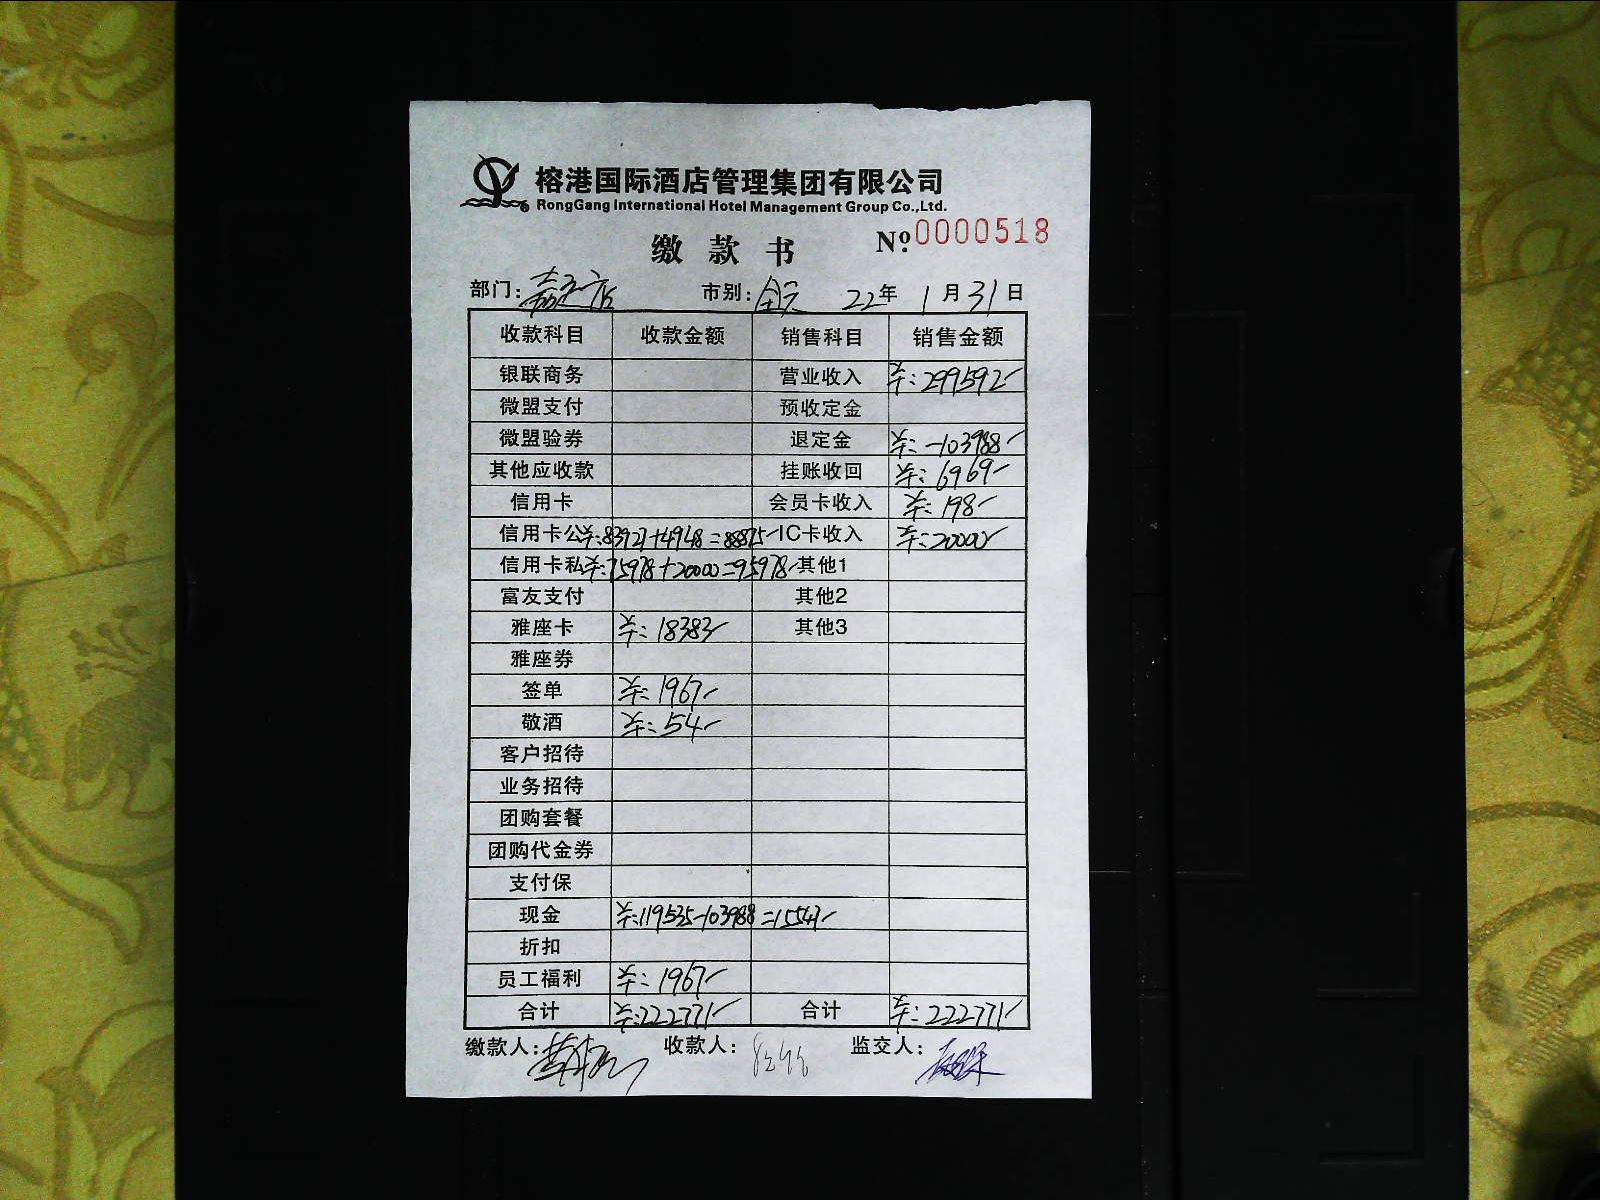 榕港国际酒店管理集团有限公司
RongGang International Hotel Management Group Co.,Ltd.
缴款书 Nº 0000518
部门: 店 市别: 全天 22年 1月31日
收款科目 收款金额 销售科目 销售金额
银联商务 营业收入 ¥:299592-
微盟支付 预收定金
微盟验券 退定金 ¥:-103988-
其他应收款 挂账收回 ¥:6969-
信用卡 会员卡收入 ¥:198-
信用卡公 ¥:83927+4948=88875- IC卡收入 ¥:20000-
信用卡私 ¥:75978+20000=95978- 其他1
富友支付 其他2
雅座卡 ¥:18383- 其他3
雅座券
签单 ¥:1967-
敬酒 ¥:54-
客户招待
业务招待
团购套餐
团购代金券
支付保
现金 ¥:119535-103988=15547-
折扣
员工福利 ¥:1967-
合计 ¥:222771- 合计 ¥:222771-
缴款人: 收款人: 监交人: